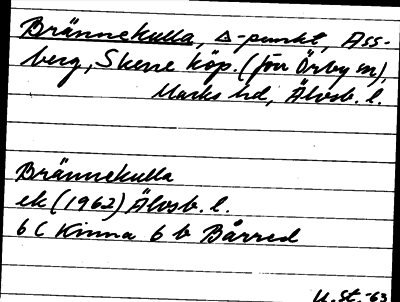 Brännekulla, Δ-punkt, Ass-
berg, Skene köp. (förr Örby sn),
Marks hd, Älvsb. l.
Brännekulla
ek (1962) Älvsb. l.
6 C Kinna 6 b Bårred
U.St.-63